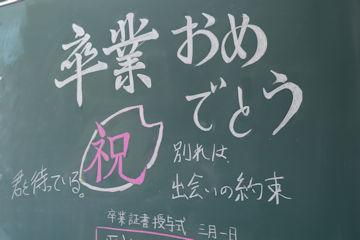 卒業おめ
でとう
祝
別れは、
出会いの約束
君を待っている。
卒業証書授与式 三月一日